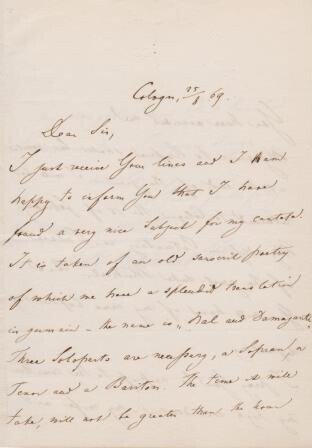 Cologn, 25/8 69.
Dear Sir,
I just receive Your lines and I am
happy to inform You that I have
found a very nice Subject for my cantata.
It is taken of an old sanscrit poetry
of which we have a splendid translation
in germain – the name is „Nal and Damajanti".
Three Soloparts are necessary, a Sopran, a
Tenor and a Bariton. The time it will
take, will not be greater than the hour